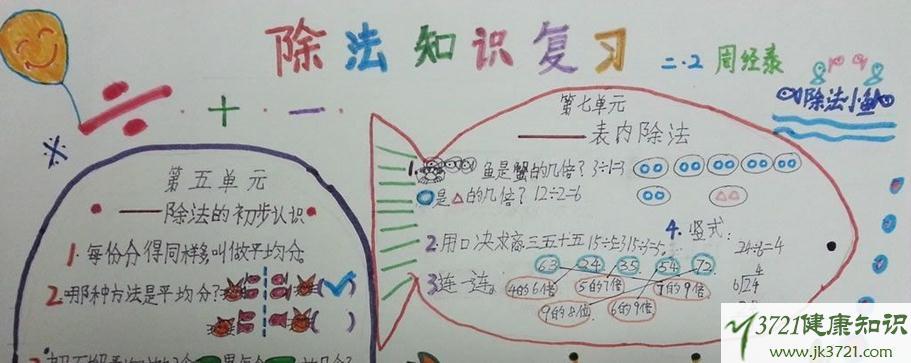 除法知识复习
二.2 周经泰
÷ · + · —
除法小鱼
第五单元
——除法的初步认识
1.每份分得同样多叫做平均分。
2.哪种方法是平均分？(✓)
( )
第七单元
——表内除法
1. 鱼是蟹的几倍？3÷1=3
○是△的几倍？12÷2=6
2.用口决求商三五十五 15÷5=3 15÷3=5
3.连一连。
63 24 35 54 72
4的6倍 5的7倍 7的9倍
9的8倍 6的9倍
4.竖式：
24÷6=4
4
6√24
3721健康知识
www.jk3721.com